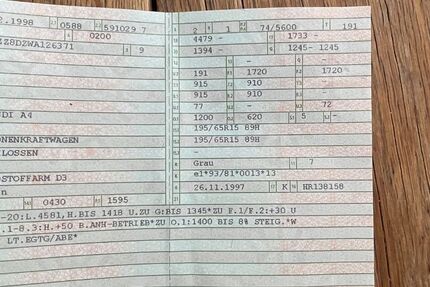 2.1998 0588 591029 7 2 1 74/5600 191
0200 4479 - 1733 -
Z8DZWA126371 9 1394 - 1245- 1245
- -
191 1720 - 1720
915 910 -
915 910 -
77 - U.2 72
DI A4 1200 620 5 -
195/65R15 89H
ONENKRAFTWAGEN 195/65R15 89H
LOSSEN -
Grau 7
STOFFARM D3 e1*93/81*0013*13
n 26.11.1997 K HR138158
0430 1595
-20:L.4581,H.BIS 1418 U.ZU G:BIS 1345*ZU F.1/F.2:+30 U
.1-8.3:H.+50 B.ANH-BETRIEB*ZU O.1:1400 BIS 8% STEIG.*W
LT.EGTG/ABE*